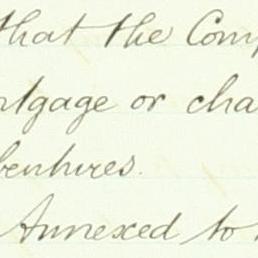 that the Comp
rtgage or cha
bentures.
Annexed to